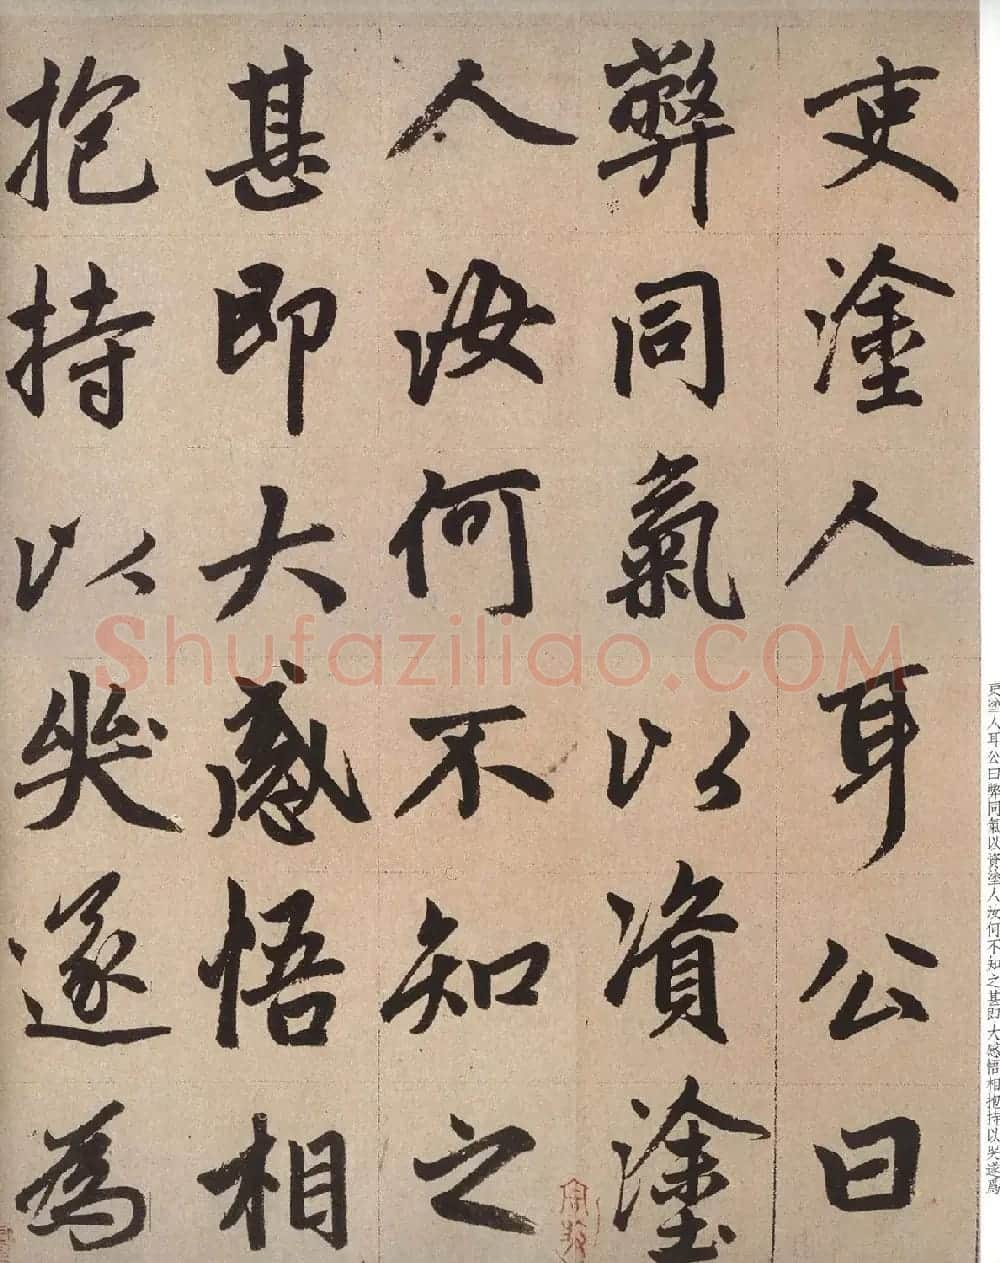 吏塗人耳公曰
弊同氣以資塗
人汝何不知之
甚即大感悟相
抱持以哭遂為
吏塗人耳公曰弊同氣以資塗人汝何不知之甚即大感悟相抱持以哭遂爲
Shufaziliao.COM